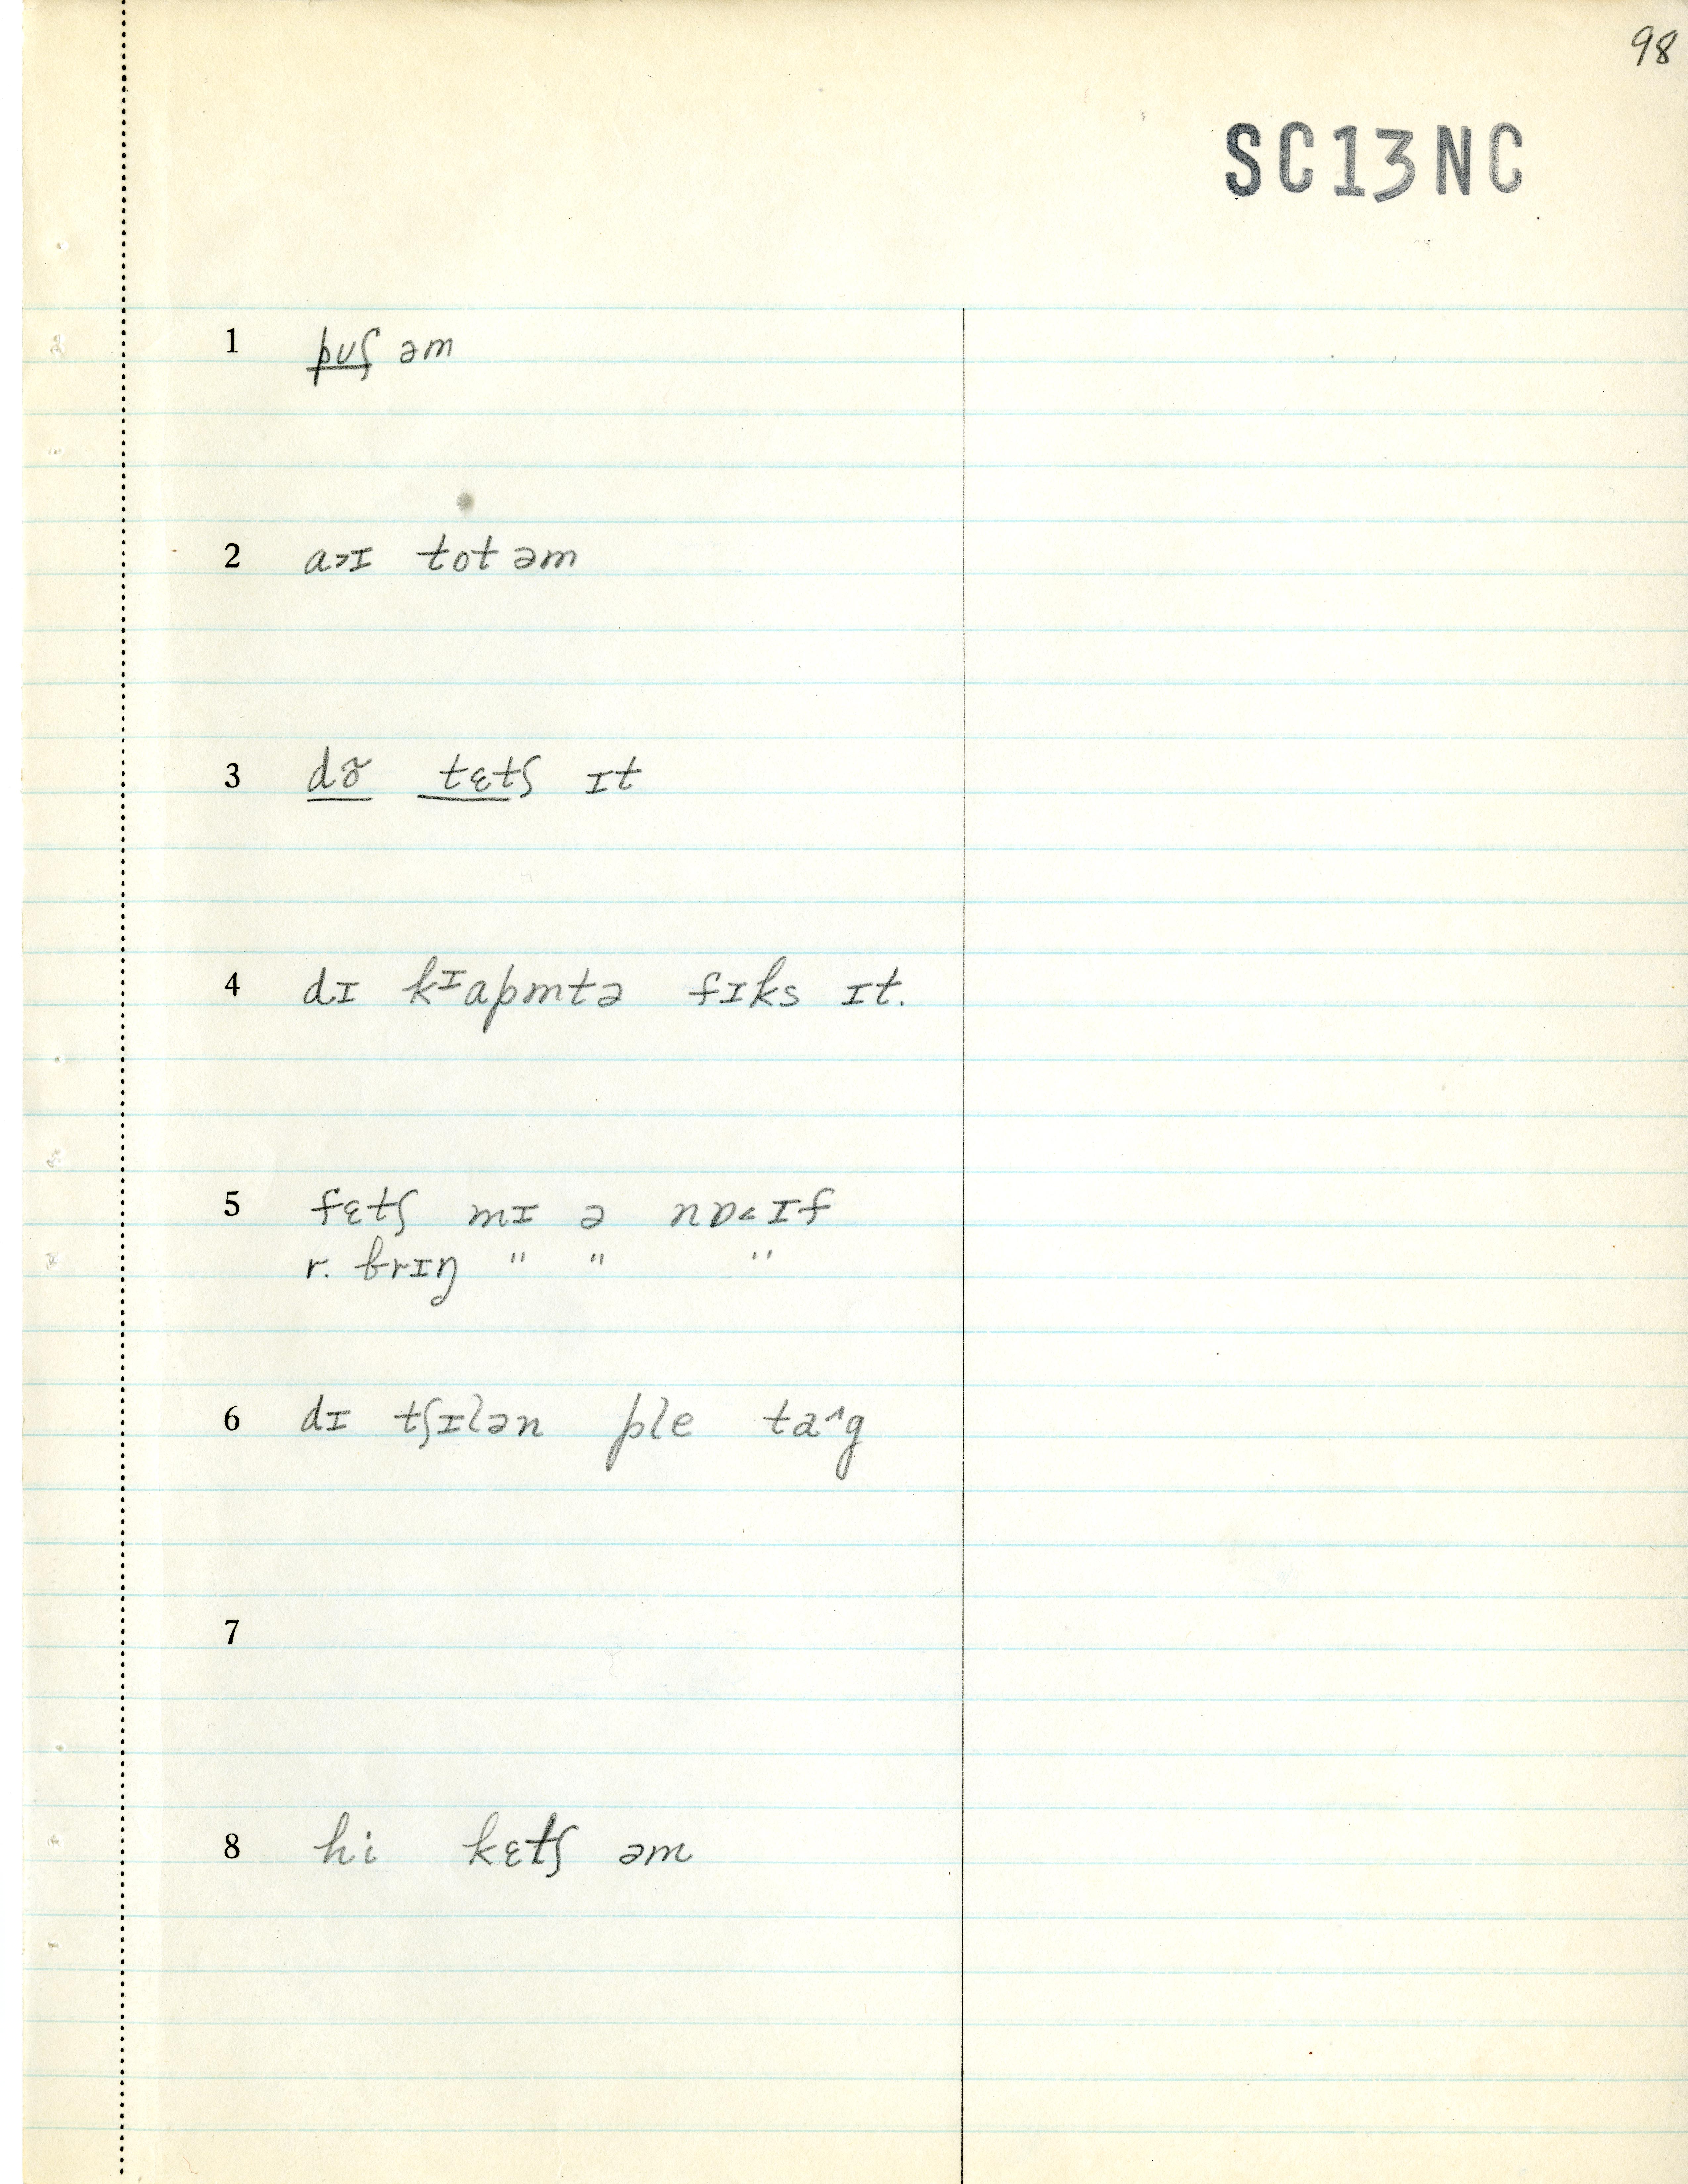 98
SC13NC
1 puʃ əm
2 a˃ɪ tot əm
3 dõ tɛtʃ ɪt
4 dɪ kᶦapmtə fɪks ɪt.
5 fɛtʃ mɪ ə nɒ˂ɪf
r. brɪŋ " " "
6 dɪ tʃɪlən ple ta^g
7
8 hi kɛtʃ əm